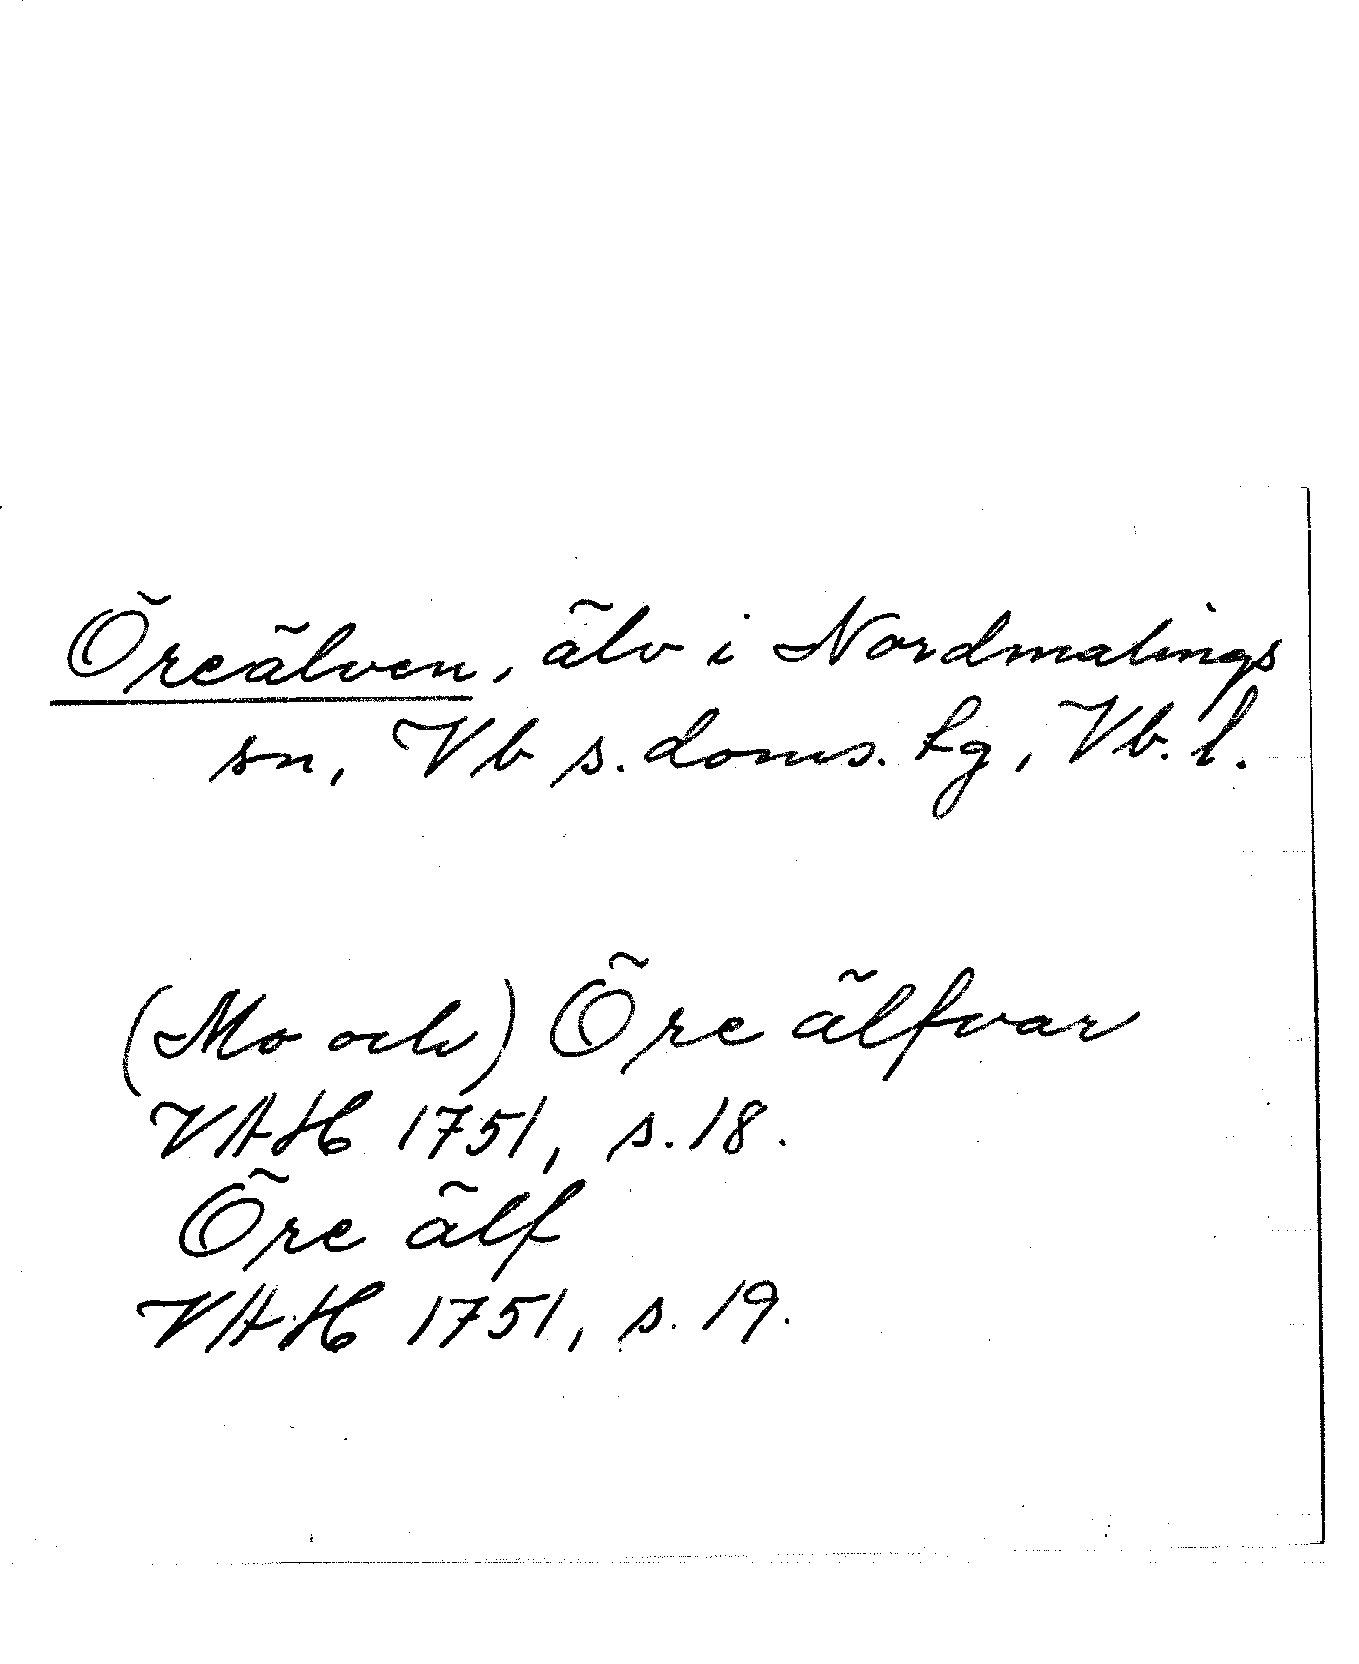 Öreälven, älv i Nordmalings
sn, Vb s. doms. tg, Vb. l.
(Mo och) Öre älfvar
VAH 1751, s. 18.
Öre älf
VAH 1751, s. 19.